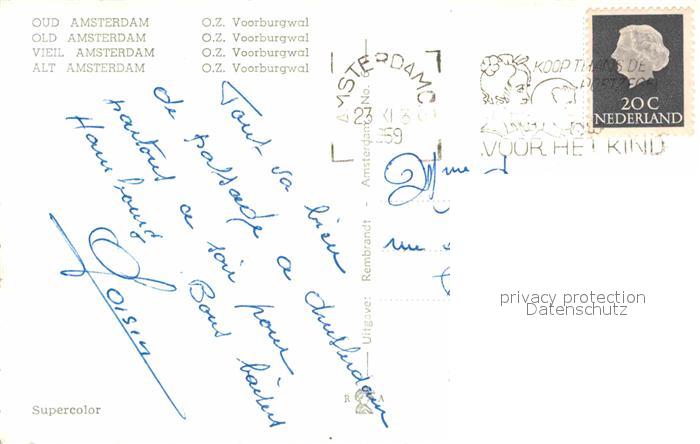 OUD AMSTERDAM O.Z. Voorburgwal
OLD AMSTERDAM O.Z. Voorburgwal
VIEIL AMSTERDAM O.Z. Voorburgwal
ALT AMSTERDAM O.Z. Voorburgwal
Tout va bien
de passage a Amsterdam
partons ce soir pour
Hambourg Bons baisers
Supercolor
Uitgave: Rembrandt - Amsterdam No.
R A
AMSTERDAM C
23 XI
1959
KOOP THANS DE
POSTZEGEL
VOOR HET KIND
20 C
NEDERLAND
Mme
rue
privacy protection
Datenschutz